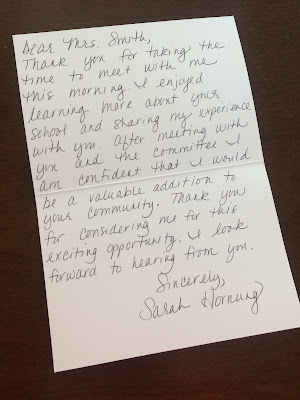 Dear Mrs. Smith,
Thank you for taking the
time to meet with me
this morning. I enjoyed
learning more about your
school and sharing my experience
with you. After meeting with
you and the committee I
am confident that I would
be a valuable addition to
your community. Thank you
for considering me for this
exciting opportunity. I look
forward to hearing from you.
Sincerely,
Sarah Hornung